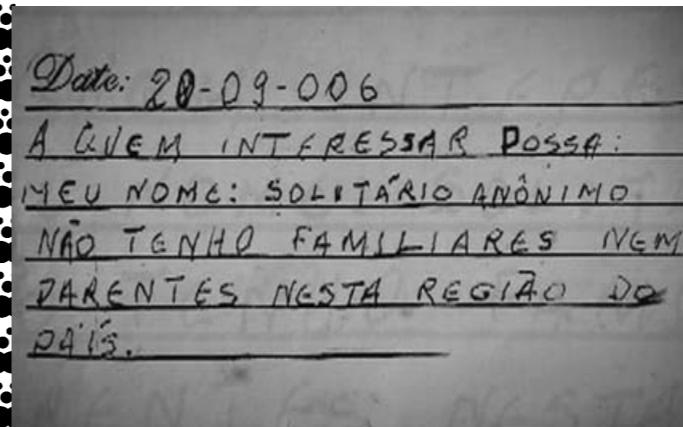 Date: 20-09-006
A QUEM INTERESSAR POSSA:
MEU NOME: SOLITÁRIO ANÔNIMO
NÃO TENHO FAMILIARES NEM
PARENTES NESTA REGIÃO DO
PAÍS.